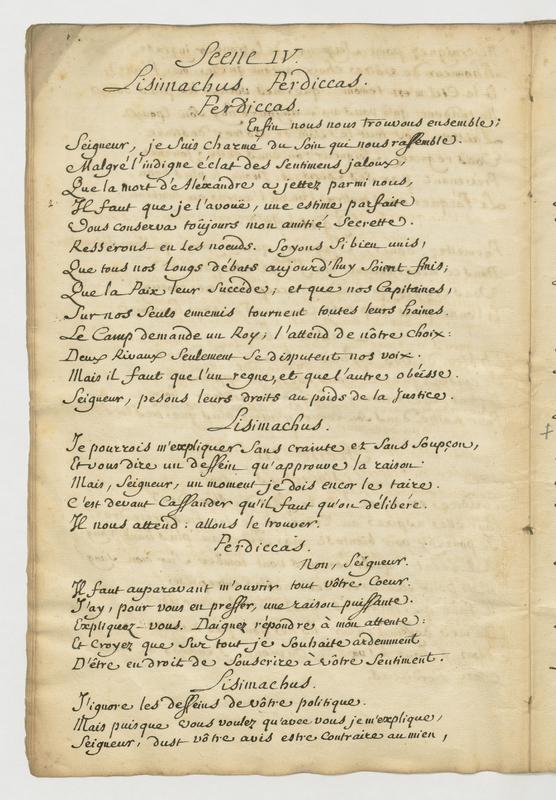 Scene IV.
Lisimachus. Perdiccas.
Perdiccas.
Enfin nous nous trouvons ensemble;
Seigneur, je suis charmé du soin qui nous rassemble.
Malgré l'indigne éclat des sentimens jaloux,
Que la mort d'Aléxandre a jettez parmi nous,
Il faut que je l'avoüe, une estime parfaite
Vous conserva toûjours mon amitié secrette.
Resserons en les noeuds. Soyons si bien unis,
Que tous nos longs débats aujourd'huy soient finis;
Que la Paix leur succède; et que nos Capitaines,
Sur nos seuls ennemis tournent toutes leurs haines.
Le Camp demande un Roy; l'attend de nôtre choix:
Deux Rivaux seulement se disputent nos voix.
Mais il faut que l'un regne, et que l'autre obéisse.
Seigneur, pesons leurs droits au poids de la Justice.
Lisimachus.
Je pourrois m'expliquer sans crainte et sans soupçon,
Et vous dire un dessein qu'approuve la raison.
Mais, Seigneur, un moment je dois encor le taire.
C'est devant Cassander qu'il faut qu'on délibére.
Il nous attend: allons le trouver.
Perdiccas.
Non, Seigneur.
Il faut auparavant m'ouvrir tout vôtre Coeur.
J'ay, pour vous en presser, une raison puissante.
Expliquez-vous. Daignez répondre à mon attente:
Et croyez que sur tout je souhaite ardemment
D'être en droit de souscrire à vôtre sentiment.
Lisimachus.
J'ignore les desseins de vôtre politique.
Mais puisque vous voulez qu'avec vous je m'explique,
Seigneur, dust vôtre avis estre contraire au mien,